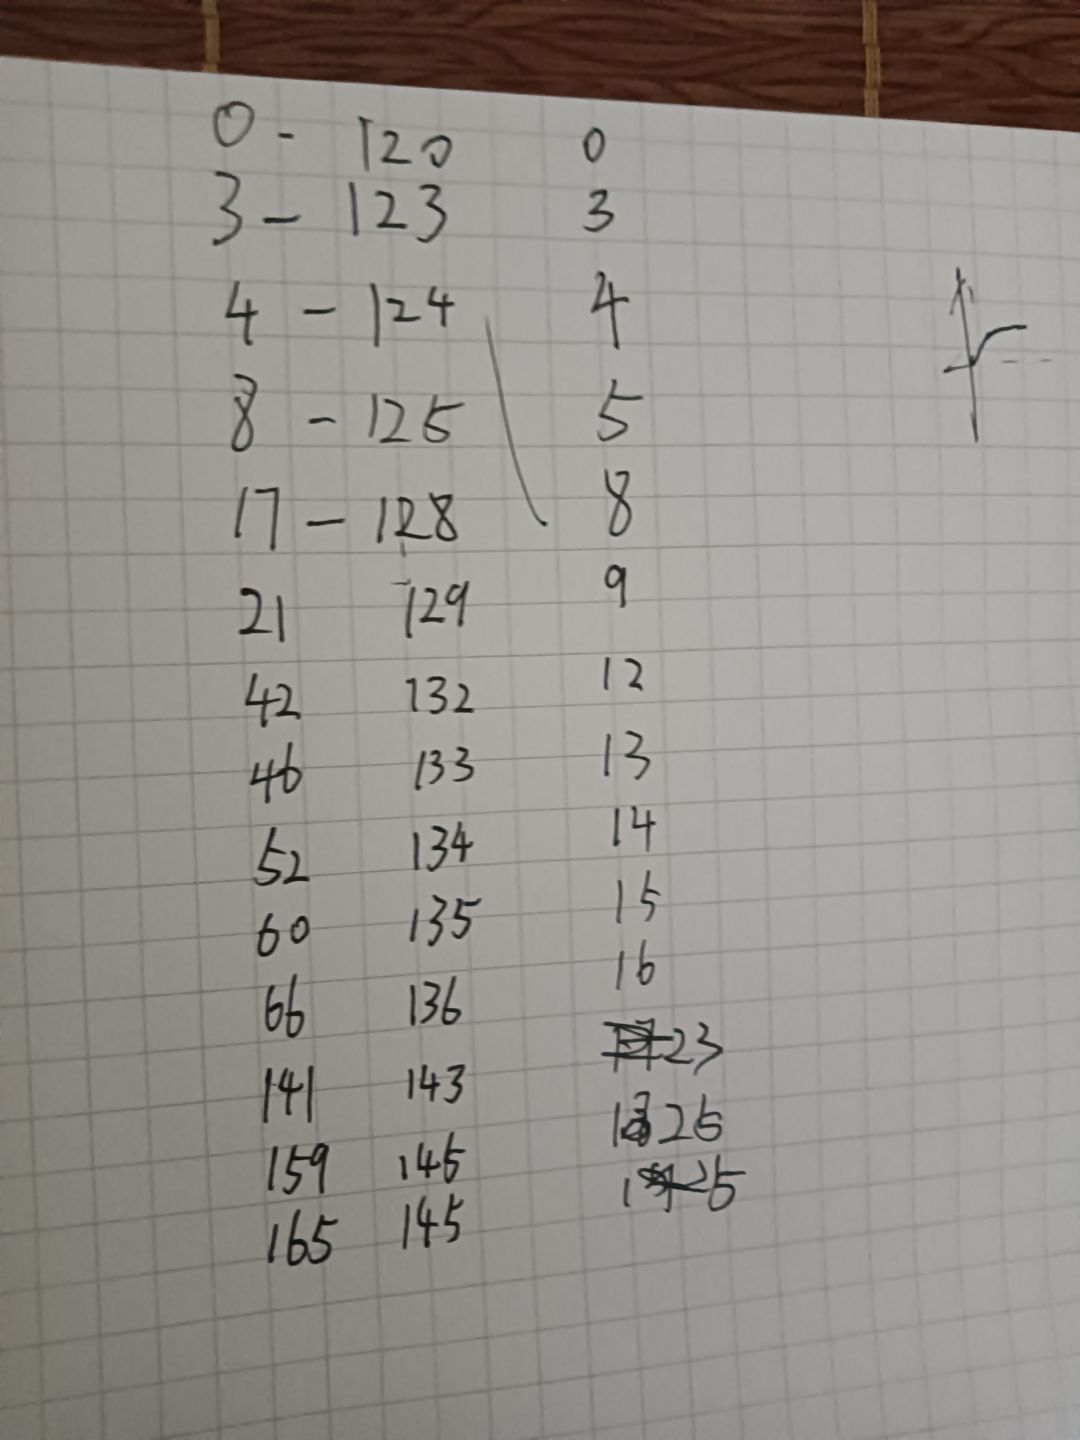 0 - 120 0
3 - 123 3
4 - 124 4
8 - 125 5
17 - 128 8
21 129 9
42 132 12
46 133 13
52 134 14
60 135 15
66 136 16
141 143 23
159 145 25
165 145 25